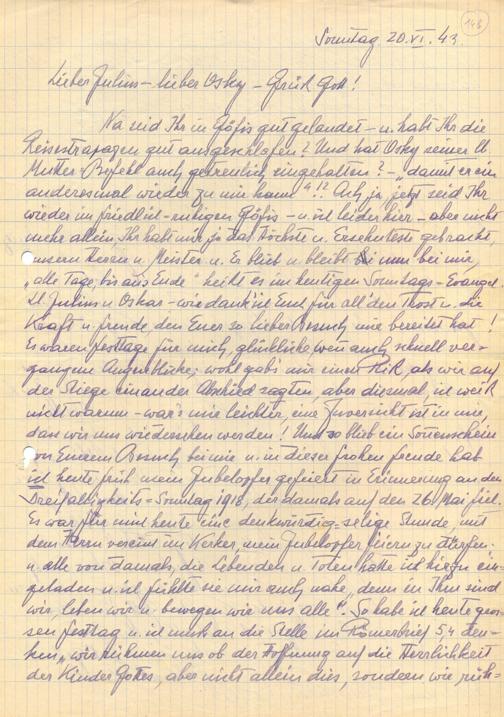 148
Sonntag 20.VI.43.
Lieber Julius – lieber Osky – Grüß Gott!
Na seid Ihr in Göfis gut gelandet – u. habt Ihr die
Reisestrapazen gut ausgeschlafen? Und hat Osky seiner lb
Mutter-Befehl auch getreulich eingehalten? – „damit er ein
anderesmal wieder zu mir kann"!? Ach ja jetzt seid Ihr
wieder im friedlich-ruhigen Göfis – u. ich leider hier – aber nicht
mehr allein, Ihr habt mir ja das Höchste u. Ersehnteste gebracht
unsern Herrn u. Meister u. Er blieb u. bleibt bei nun bei mir,
„alle Tage, bis ans Ende" heißt es im heutigen Sonntags-Evangel.
Lb Julius u. Oskar – wie dank' ich Euch für all' den Trost u. die
Kraft u. Freude, den Euer so lieber Besuch mir bereitet hat!
Es waren Festtage für mich, glückliche, wenn auch schnell ver-
gangene Augenblicke, wohl gab's mir einen Riß, als wir auf
der Stiege einander Abschied sagten, aber diesmal, ich weiß
nicht warum – war's mir leichter, eine Zuversicht ist in mir,
dass wir uns wiedersehen werden! Und so blieb ein Sonnenschein
von Eurem Besuch bei mir u. in dieser frohen Freude hab
ich heute früh mein Jubelopfer gefeiert in Erinnerung an den
Dreifaltigkeits-Sonntag 1918, der damals auf den 26. Mai fiel.
Es war für mich heute eine denkwürdig-selige Stunde, mit
dem Herrn vereint im Kerker, mein Jubelopfer feiern zu dürfen.
u. alle von damals, die Lebenden u. Toten hatte ich hiezu ein-
geladen u. ich fühlte sie mir auch nahe „denn in Ihm sind
wir, leben wir u. bewegen wir uns alle". So habe ich heute gros-
sen Festtag u. ich muß an die Stelle im Römerbrief 5,4 den-
ken „wir rühmen uns ob der Hoffnung auf die Herrlichkeit
der Kinder Gottes, aber nicht allein dies, sondern wir rüh-